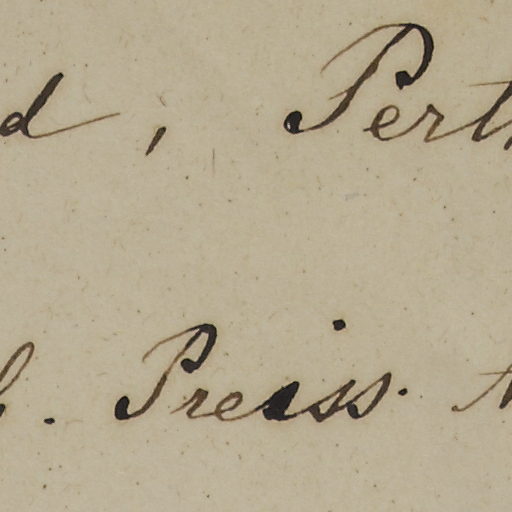 d, Perth
. Preiss.